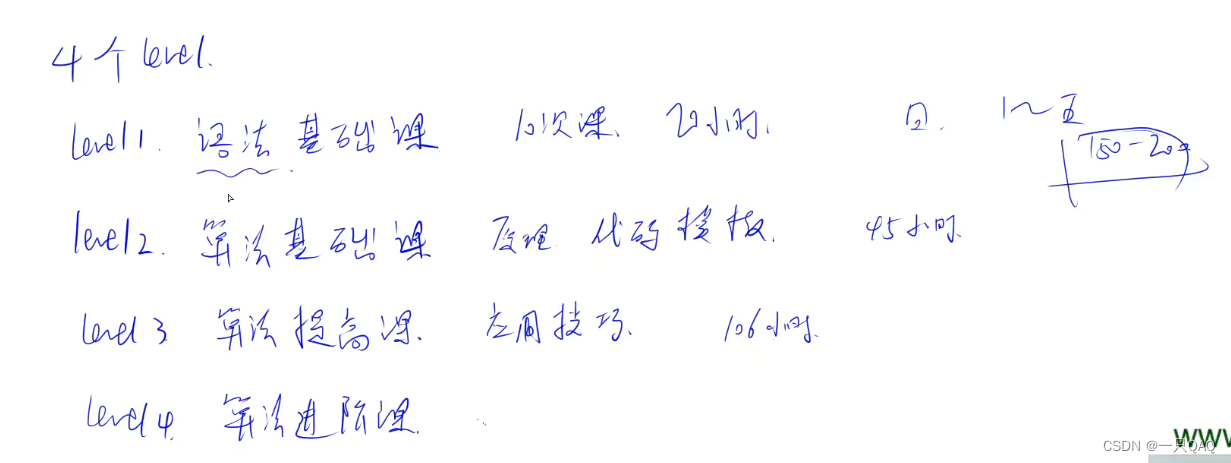 4个level.
level1. 语法基础课 10次课、20小时. 日. 1~五
150-200
level2. 算法基础课 原理 代码模板. 45小时.
level3 算法提高课. 应用技巧. 106小时.
level4. 算法进阶课.
WWW
CSDN @一只QAQ